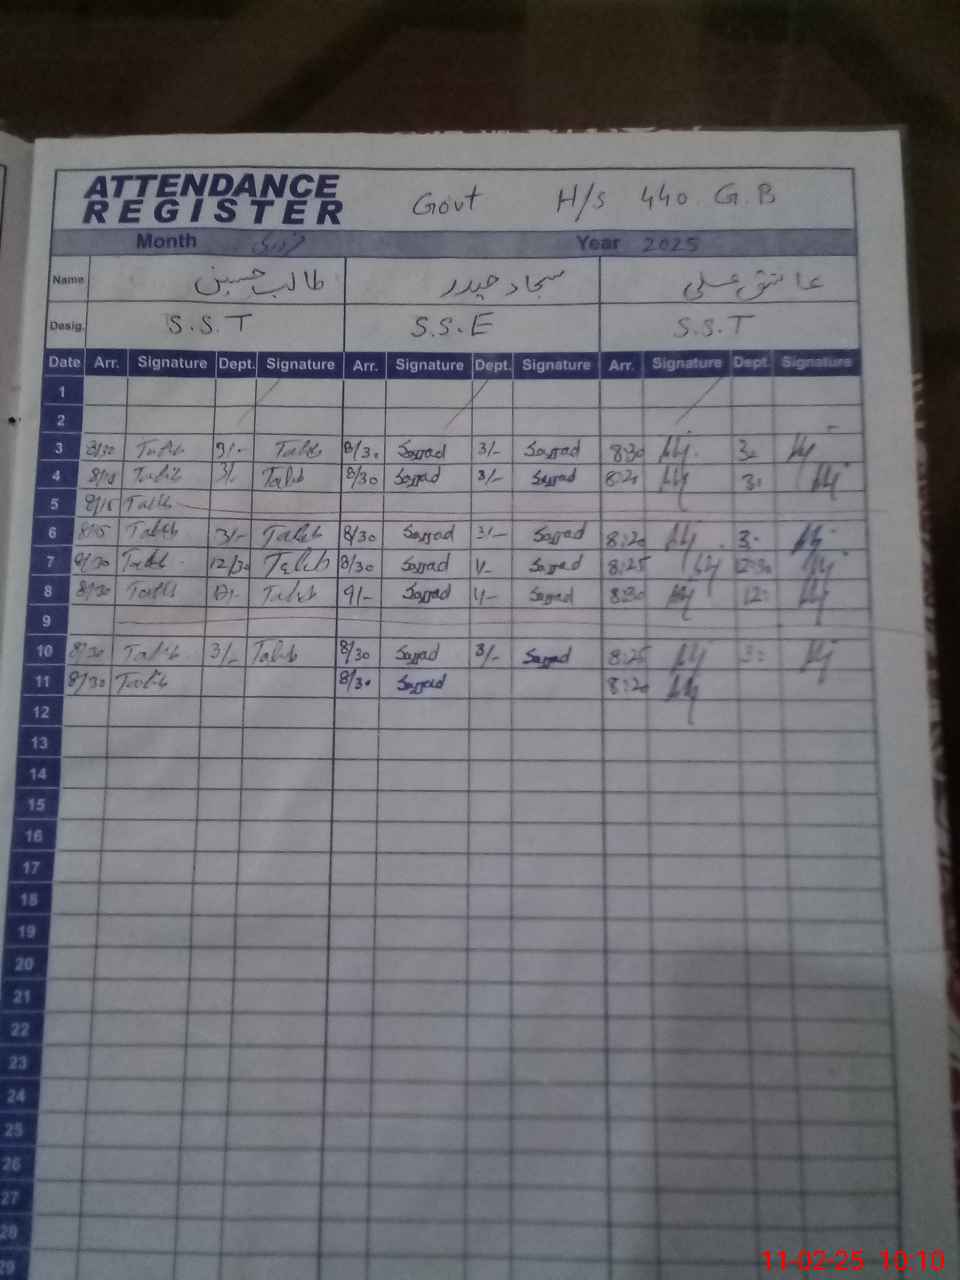 ATTENDANCE
REGISTER
Govt H/S 440 G.B
Month فروری Year 2025
Name طالب حسین سجاد حیدر عاشق علی
Desig. S.S.T S.S.E S.S.T
Date Arr. Signature Dept. Signature Arr. Signature Dept. Signature Arr. Signature Dept. Signature
1
2
3 8/30 Talib 3/- Talib 8/30 Sajjad 3/- Sajjad 8:30 3:
4 Talib 3/- Talib 8/30 Sajjad 3/- Sajjad 8:20 3:
5 8/15 Talib
6 8/15 Talib 3/- Talib 8/30 Sajjad 3/- Sajjad 8:20 3:
7 8/30 Talib 12/30 Talib 8/30 Sajjad Sajjad 8:25 12:30
8 8/30 Talib Talib 9/- Sajjad Sajjad 8:30 12:
9
10 8/30 Talib 3/- Talib 8/30 Sajjad 3/- Sajjad 8:25 3:
11 8/30 Talib 8/30 Sajjad 8:20
12
13
14
15
16
17
18
19
20
21
22
23
24
25
26
27
28
29
11-02-25 10:10